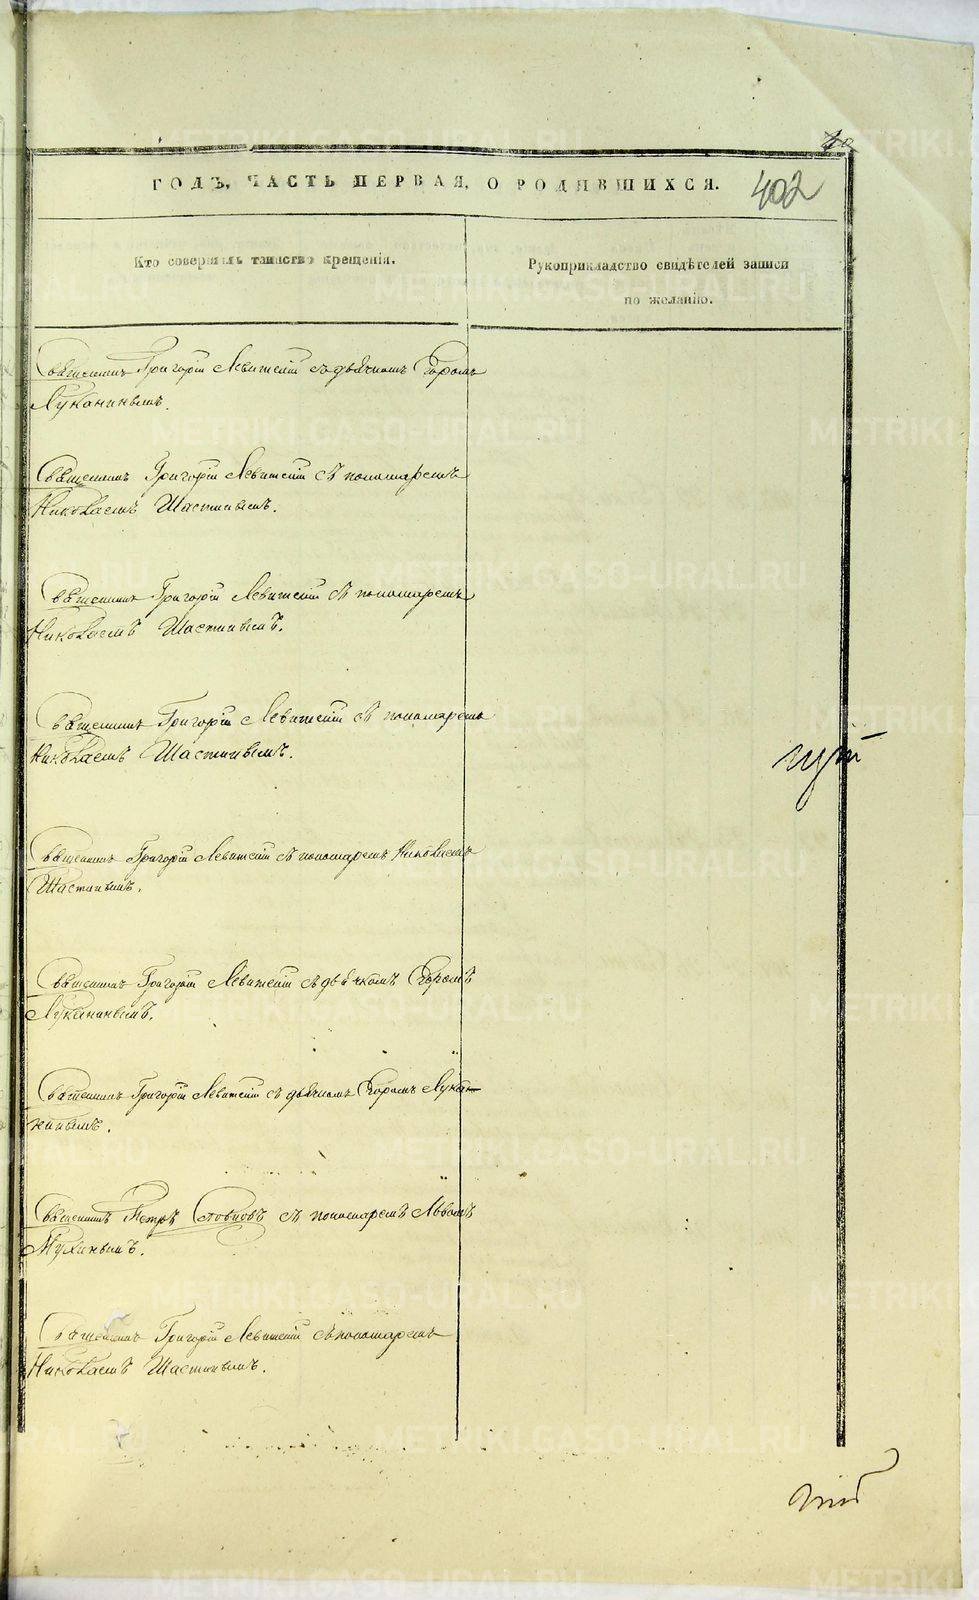 ГОДЪ, ЧАСТЬ ПЕРВАЯ, О РОДИВШИХСЯ.
402
Кто совершалъ таинство крещенія.
Рукоприкладство свидѣтелей записи
по желанію.
Священникъ Григорій Левитскій съ дьячкомъ Егоромъ
Луканинымъ.
Священникъ Григорій Левитскій съ пономаремъ
Николаемъ Шастинымъ.
Священникъ Григорій Левитскій съ пономаремъ
Николаемъ Шастинымъ.
Священникъ Григорій Левитскій съ пономаремъ
Николаемъ Шастинымъ.
Священникъ Григорій Левитскій съ пономаремъ Николаемъ
Шастинымъ.
Священникъ Григорій Левитскій съ дьячкомъ Егоромъ
Луканинымъ.
Священникъ Григорій Левитскій съ дьячкомъ Егоромъ Лука-
нинымъ.
Священникъ Петръ съ пономаремъ Львомъ
Мухинымъ.
Священникъ Григорій Левитскій съ пономаремъ
Николаемъ Шастинымъ.
METRIKI.GASO-URAL.RU